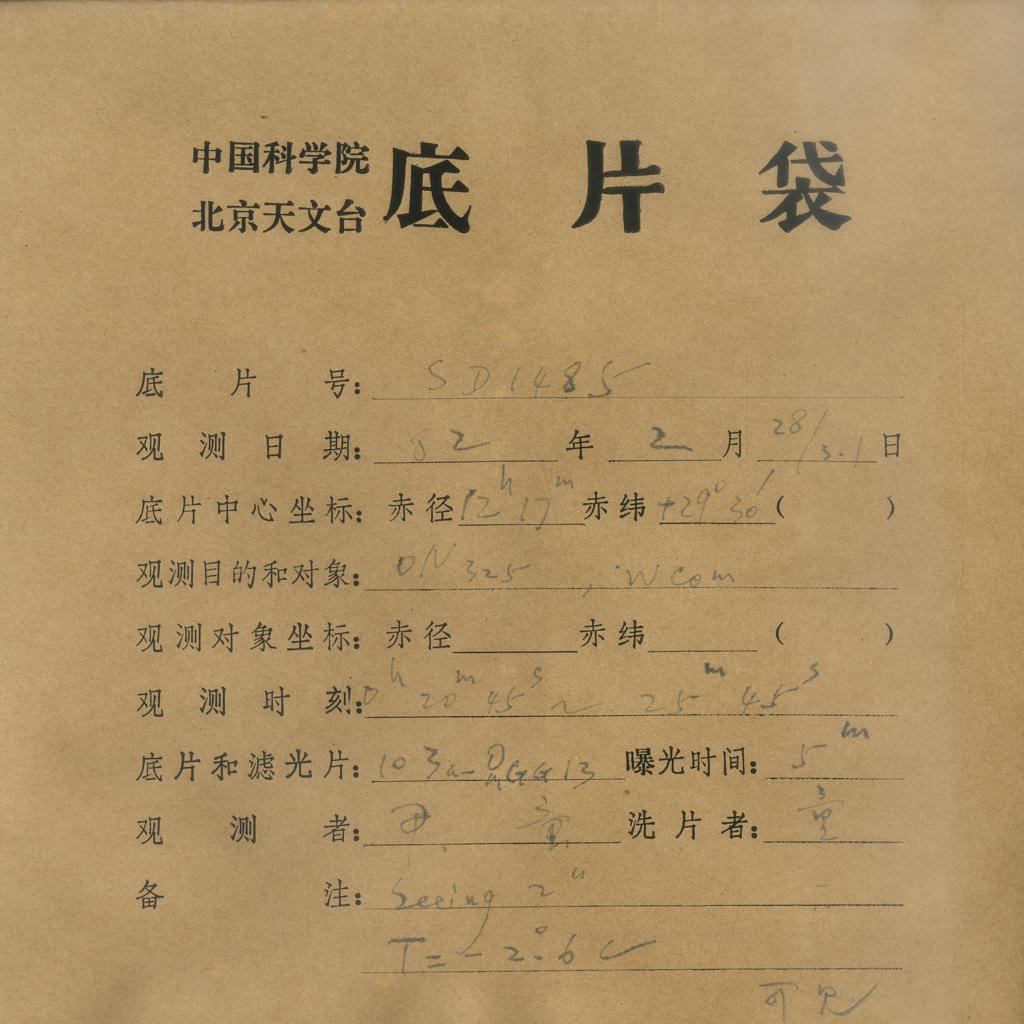 中国科学院
北京天文台
底片袋
底片号: SD1485
观测日期: 82年2月28/3.1日
底片中心坐标: 赤径12h17m赤纬+29°30′( )
观测目的和对象: ON325, WCom
观测对象坐标: 赤径 赤纬 ( )
观测时刻: 0h20m45s~25m45s
底片和滤光片: 103a- GG13 曝光时间: 5m
观测者: 童 洗片者: 童
备注: Seeing 2"
T=-2°.6C
可见